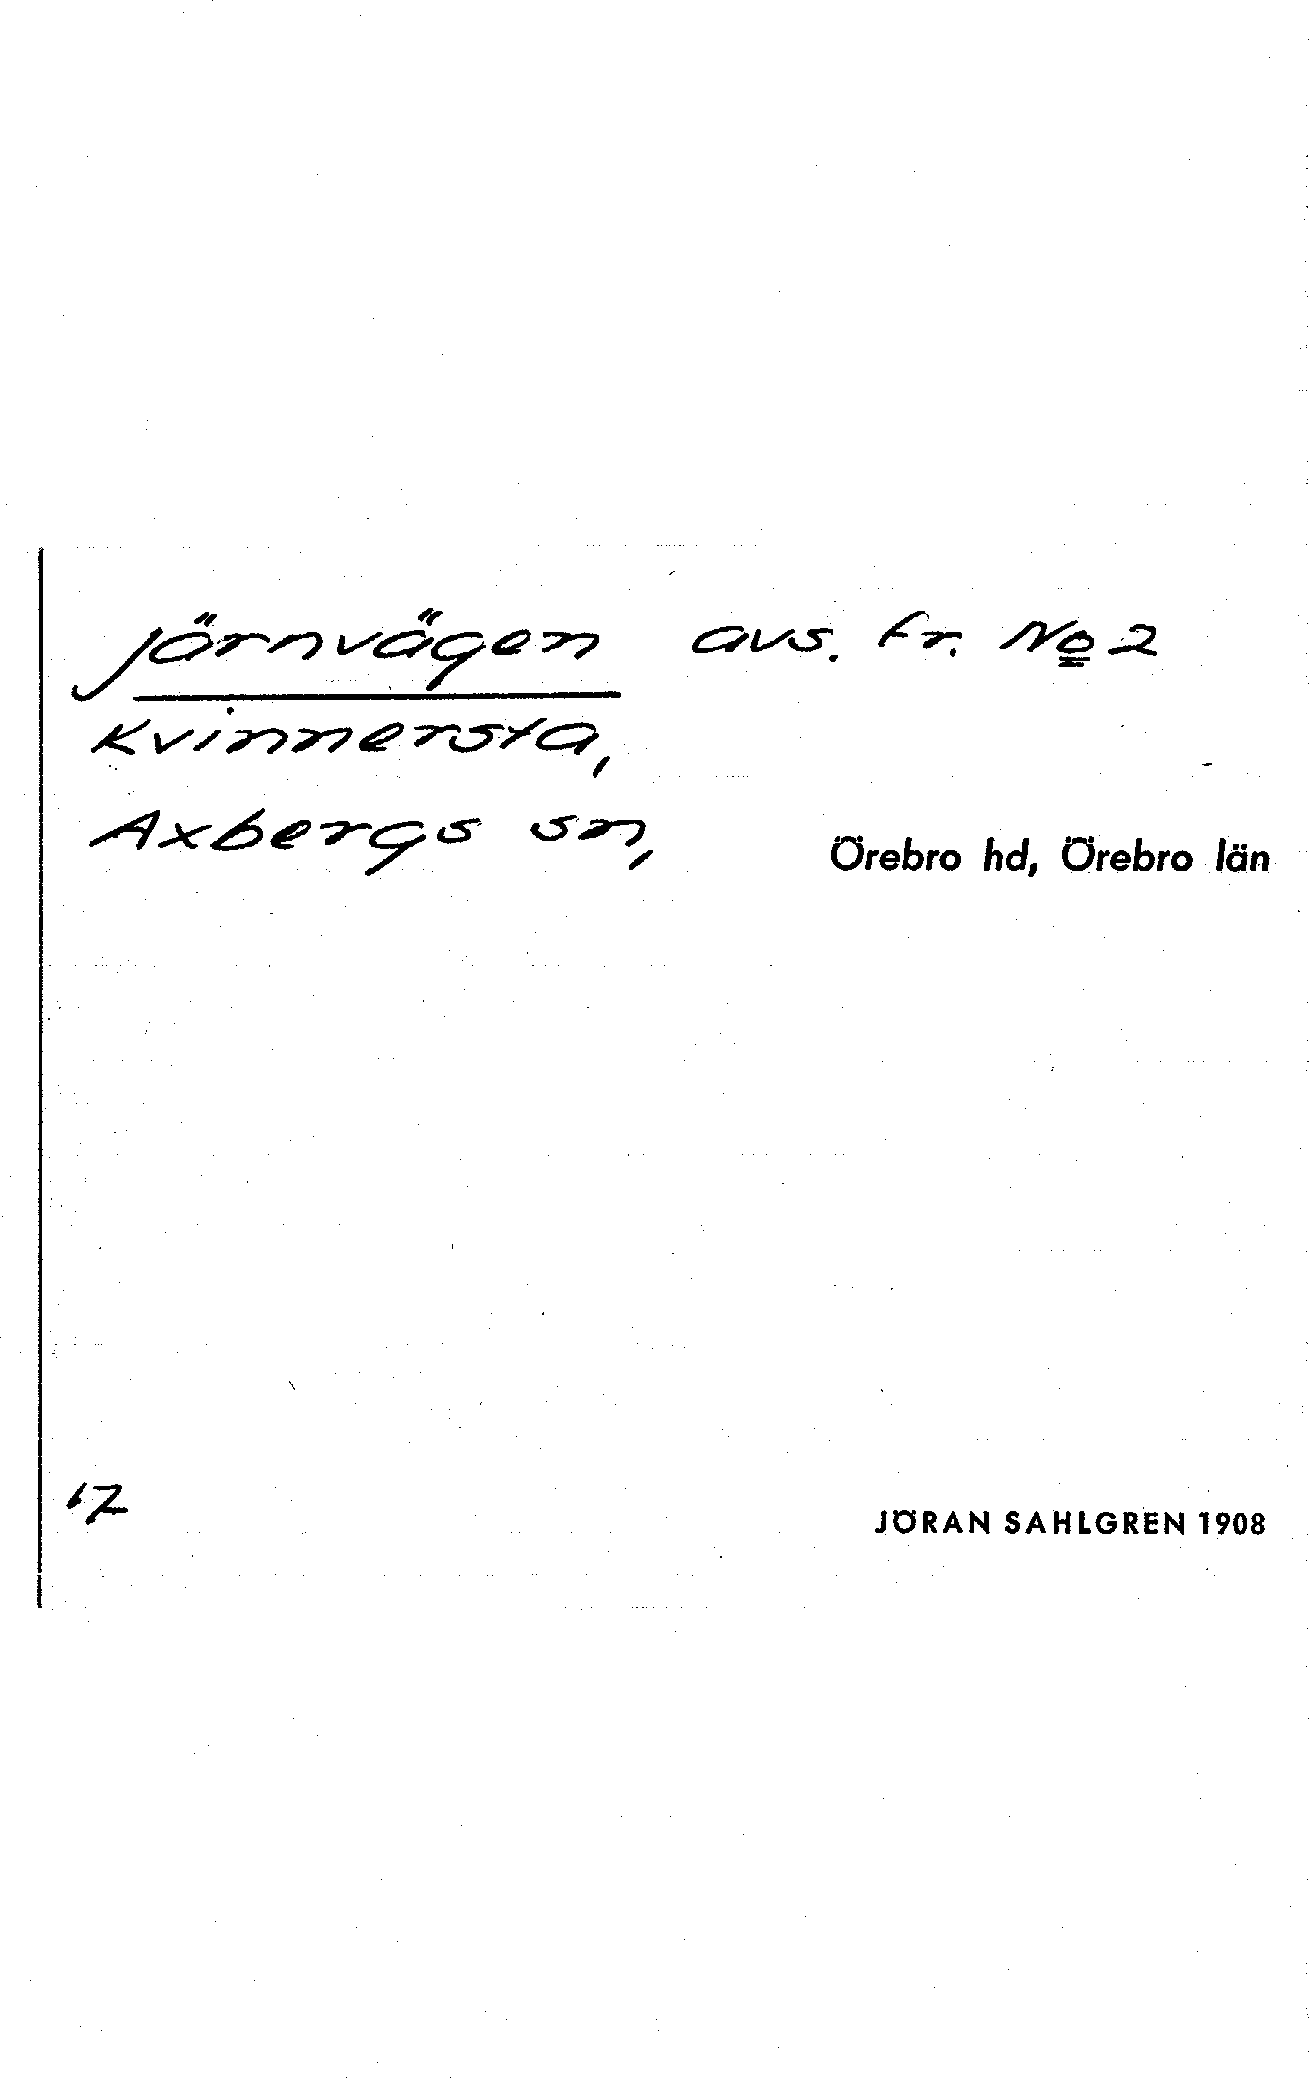 järnvägen avs. fr. No 2
Kvinnersta,
Axbergs sn,
Örebro hd, Örebro län
JÖRAN SAHLGREN 1908